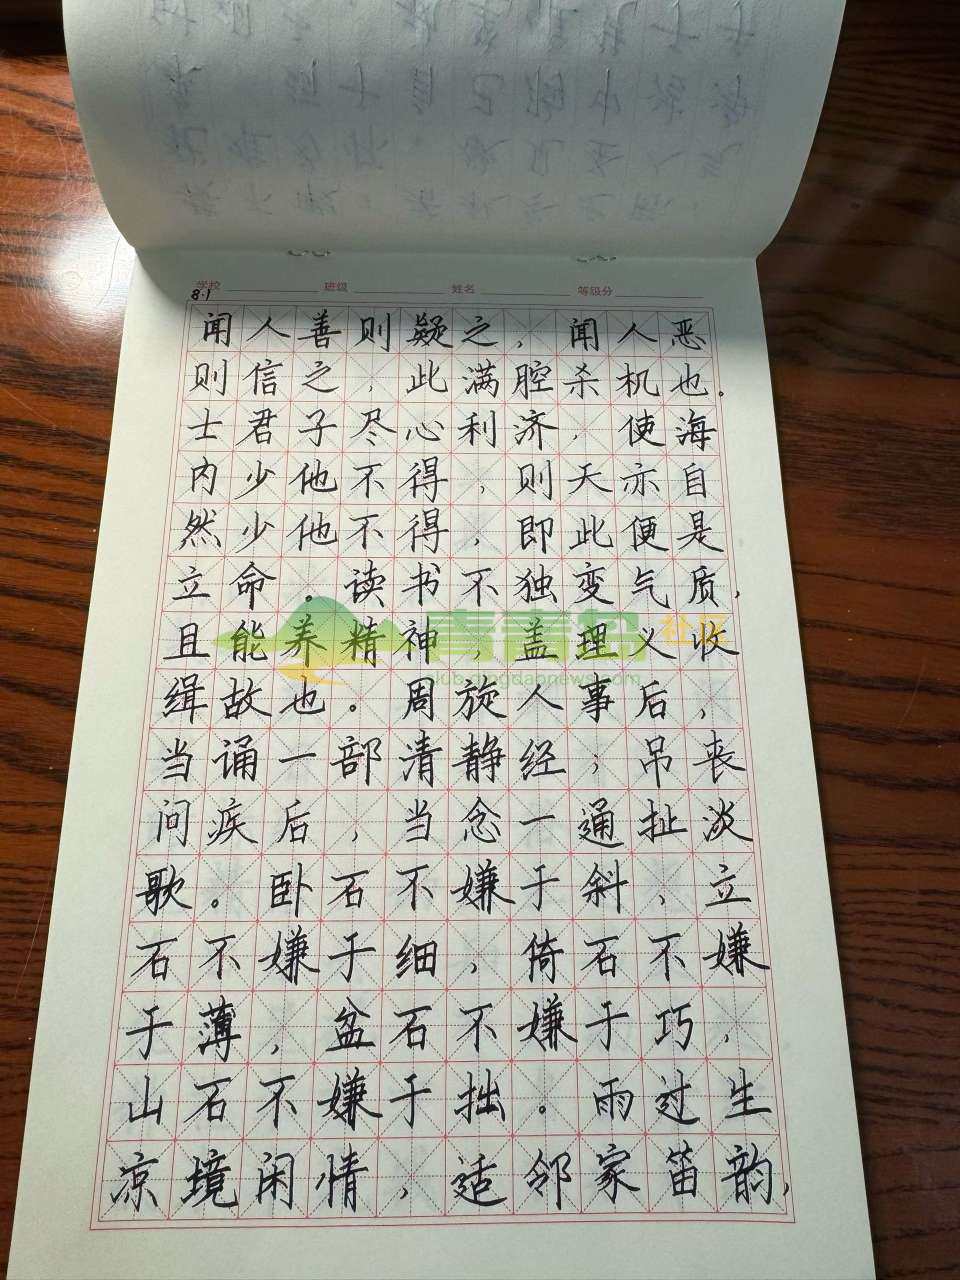 学校 班级 姓名 等级分
8.1
闻人善则疑之，闻人恶
则信之，此满腔杀机也。
士君子尽心利济，使海
内少他不得，则天亦自
然少他不得，即此便是
立命。读书不独变气质，
且能养精神，盖理义收
缉故也。周旋人事后，
当诵一部清静经；吊丧
问疾后，当念一通扯淡
歌。卧石不嫌于斜，立
石不嫌于细，倚石不嫌
于薄，盆石不嫌于巧，
山石不嫌于拙。雨过生
凉境闲情，适邻家笛韵，
青青岛社区
club.qingdaonews.com